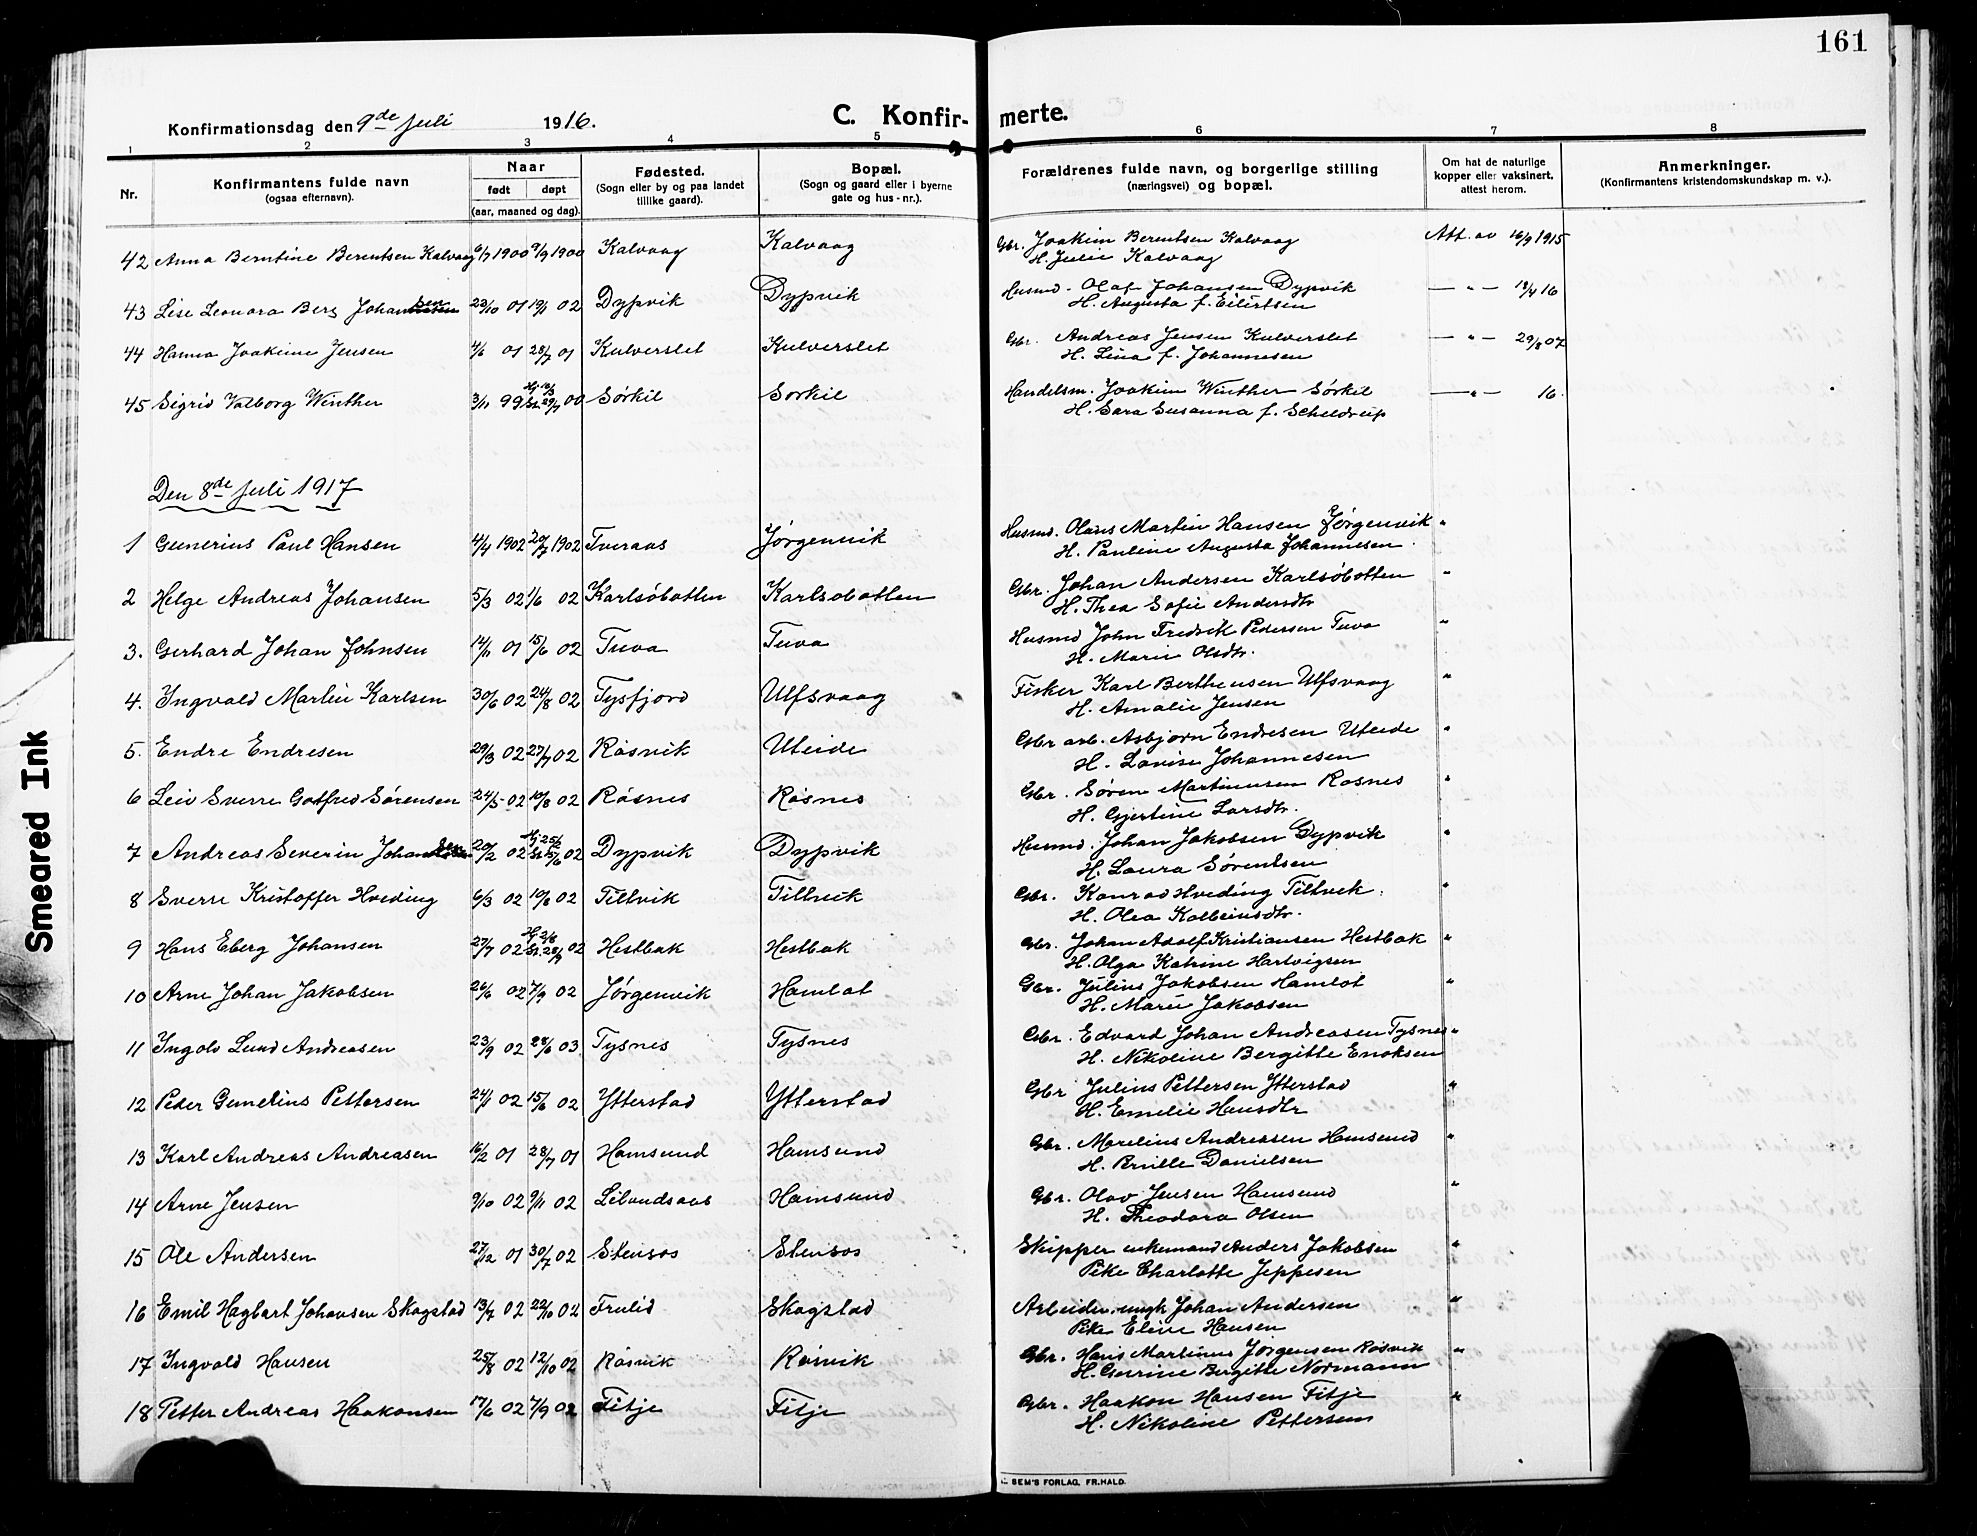 161
Konfirmationsdag den 9de juli 1916. C. Konfir- merte.
1 2 3 4 5 6 7 8
Nr. Konfirmantens fulde navn (ogsaa efternavn). Naar født døpt (aar, maaned og dag). Fødested. (Sogn eller by og paa landet tillike gaard). Bopæl. (Sogn og gaard eller i byerne gate og hus-nr.). Forældrenes fulde navn, og borgerlige stilling (næringsvei) og bopæl. Om hat de naturlige kopper eller vaksinert, attest herom. Anmerkninger. (Konfirmantens kristendomskundskap m. v.).
42 Anna Berntine Berentsen Kalvaag 6/7 1900 9/9 1900 Kalvaag Kalvaag Gbr. Joakim Berentsen Kalvaag Att. av 16/9 1915
H. Julie Kalvaag
43 Lise Leonora Berg Johansen 23/10 01 19/1 02 Dypvik Dypvik Husmd. Olaf Johansen Dypvik — " — 18/4 16
H. Augusta f. Eilertsen
44 Hanna Joakime Jensen 4/6 01 28/7 01 Kulverslet Kulverslet Gbr. Andreas Jensen Kulverslet — " — 29/8 07
H. Lina f. Johannesen
45 Sigrid Valborg Winther 3/11 99 Hj. 18/3 St. 29/7 00 Sørkil Sørkil Handelsm. Joakim Winther Sørkil — " — 16.
H. Sara Susanna f. Scheldrup
Den 8de juli 1917
1 Gunerius Paul Hansen 4/4 1902 20/7 1902 Tveraas Jørgenvik Husmd. Olaus Martin Hansen Jørgenvik "
H. Pauline Augusta Johannesen.
2 Helge Andreas Johansen 5/3 02 1/6 02 Karlsøbotten Karlsøbotten Gbr. Johan Andersen Karlsøbotten "
H. Thea Sofie Andersdtr
3. Gerhard Johan Johnsen 14/11 01 15/6 02 Tuva Tuva Husmd John Fredrik Pedersen Tuva "
H. Marie Olsdtr.
4. Ingvald Martin Karlsen 30/6 02 24/8 02 Tysfjord Ulfsvaag Fisker Karl Bertheusen Ulfsvaag "
H. Amalie Jensen
5. Endre Endresen 29/3 02 27/7 02 Røsvik Uteide Gbr arb. Asbjørn Endresen Uteide "
H. Lovise Johannesen
6 Leiv Sverre Gotfred Sørensen 24/5 02 10/8 02 Røsnes Røsnes Gbr. Søren Martinusen Røsnes "
H. Gjertine Larsdtr.
7 Andreas Severin Johansen 20/2 02 Hj. 25/2 St. 15/6 02 Dypvik Dypvik Husmd. Johan Jakobsen Dypvik "
H. Laura Sørensen
8 Sverre Kristoffer Hveding 6/3 02 10/8 02 Tiltvik Tiltvik Gbr. Konrad Hveding Tiltvik. "
H. Olea Kolbeinsdtr.
9 Hans Eberg Johansen 27/7 02 Hj 2/8 St. 28/9 02 Hestbak Hestbak Gbr. Johan Adolf Kristiansen Hestbak "
H. Olga Katrine Hartvigsen
10 Arne Johan Jakobsen 26/6 02 7/9 02 Jørgenvik Hamlot Gbr. Julius Jakobsen Hamlot "
H. Marie Jakobsen
11 Ingolv Lund Andreasen 23/9 02 28/6 03. Tysnes Tysnes Gbr. Edvard Johan Andreasen Tysnes "
H. Nikoline Bergitte Enoksen
12 Peder Gunelius Pettersen 24/1 02 15/6 02 Ytterstad Ytterstad Gbr Julius Pettersen Ytterstad "
H. Emelie Hansdtr
13 Karl Andreas Andreasen 16/2 01 28/7 01 Hamsund Hamsund Gbr. Marelius Andreasen Hamsund "
H. Danielsen
14 Arne Jensen 9/10 02 9/11 02 Hamsund Gbr. Olav Jensen Hamsund "
H. Theodora Olsen
15 Ole Andersen 27/12 01 30/7 02 Stensos Stensos Skipper enkemand Anders Jakobsen "
Pike Charlotte Jeppesen
16 Emil Hagbart Johansen Skogstad 13/7 02 22/10 02 Frulid Skogstad Arbeider, ungk Johan Andersen "
Pike Eline Hansen
17 Ingvald Hansen 25/8 02 12/10 02 Røsvik Røsvik Gbr. Hans Martinus Jørgensen Røsvik "
H. Gurine Bergitte Normann
18 Petter Andreas Haakonsen 17/6 02 7/9 02 Fitje Fitje Gbr. Haakon Hansen Fitje "
H. Nikoline Pettersen
SEM'S FORLAG, FR. HALD.
Smeared Ink